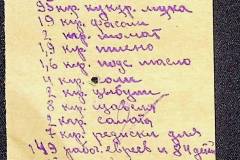 35 кгр. кукур. мука
19 кгр. фасоли
2 кгр. томат
19 кгр. пшено
1,6 кгр. подс. масло
4 кгр. соли
2 кгр. цибули
8 кгр. щавеля
9 кгр. салата
7 кгр. редиски для
149 рабоч. евреев и 84 детей